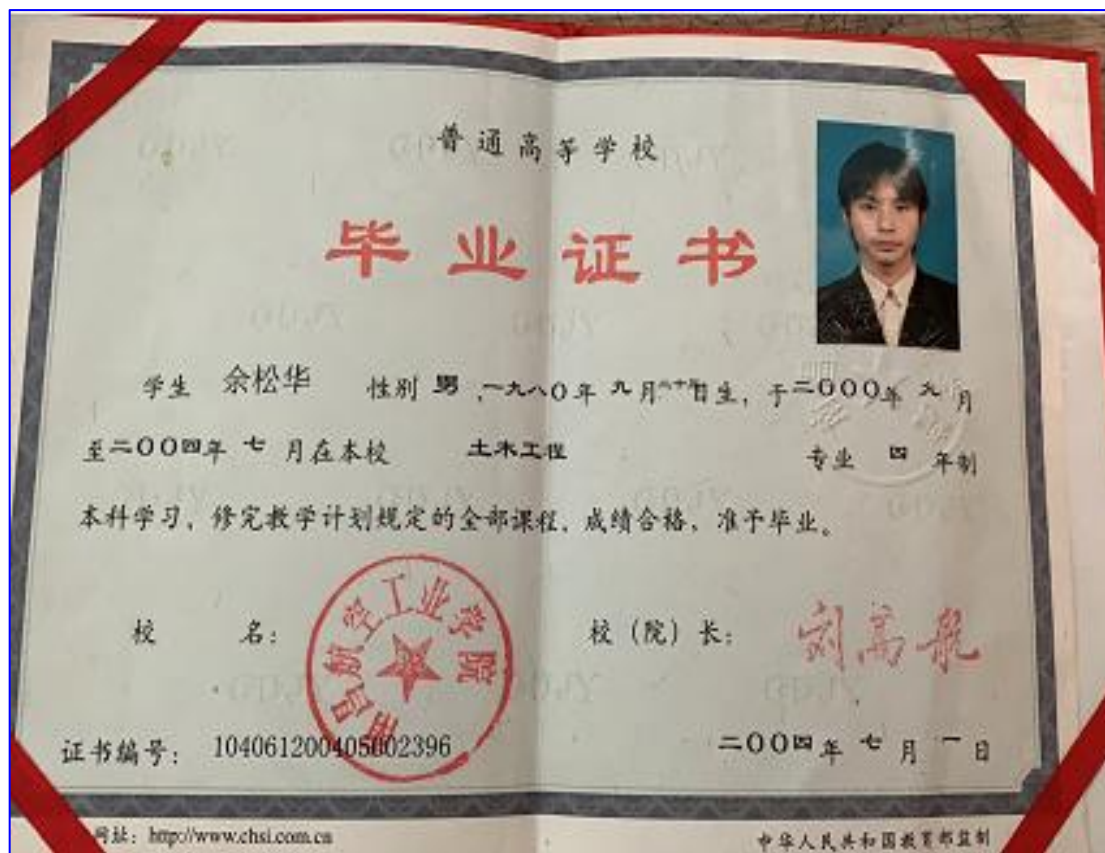 普通高等学校
毕业证书
学生 余松华 性别 男，一九八〇年 九月 日生，于二〇〇〇年 九 月
至二〇〇四年 七 月在本校 土木工程 专业 四 年制
本科学习，修完教学计划规定的全部课程，成绩合格，准予毕业。
校 名： 南昌航空工业学院 校（院）长： 刘高航
证书编号： 104061200405002396 二〇〇四年 七 月 一 日
网址：http://www.chsi.com.cn 中华人民共和国教育部监制